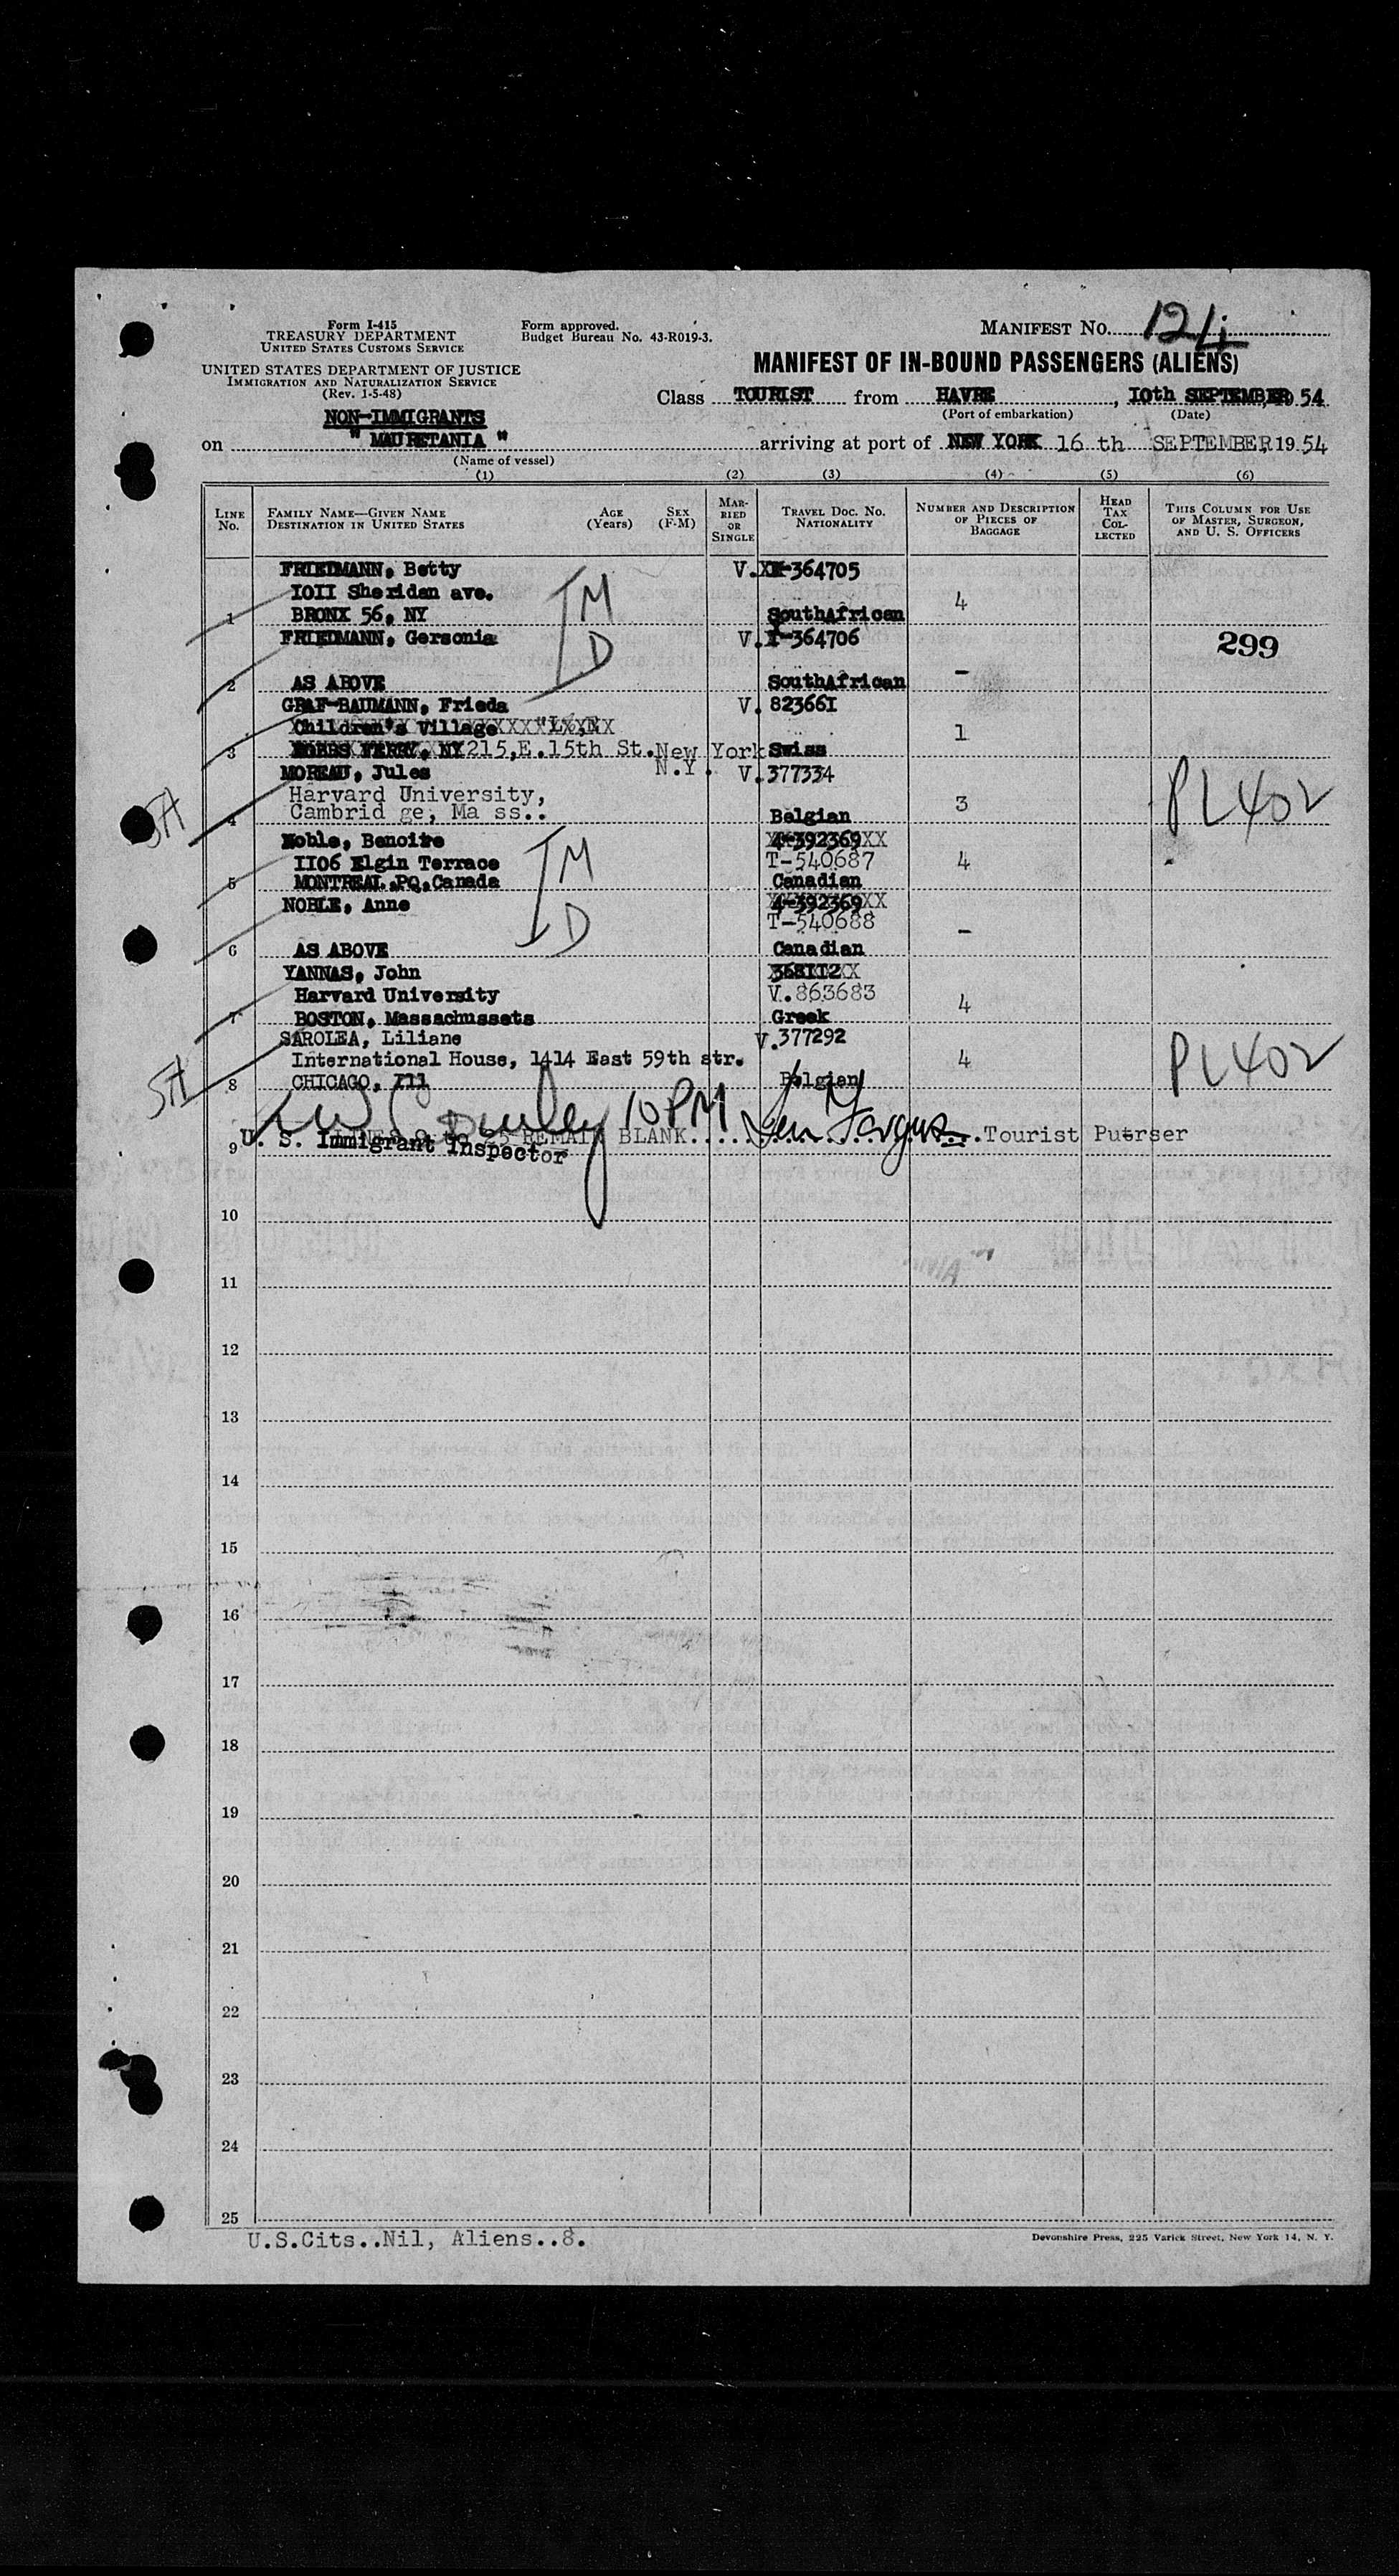 Form I-415
TREASURY DEPARTMENT
UNITED STATES CUSTOMS SERVICE
UNITED STATES DEPARTMENT OF JUSTICE
IMMIGRATION AND NATURALIZATION SERVICE
(Rev. 1-5-48)
Form approved.
Budget Bureau No. 43-R019-3.
MANIFEST NO. 124
MANIFEST OF IN-BOUND PASSENGERS (ALIENS)
Class TOURIST from HAVRE, 10th SEPTEMBER, 1954
(Port of embarkation) (Date)
NON-IMMIGRANTS
on " MAURETANIA " arriving at port of NEW YORK 16 th SEPTEMBER, 1954
(Name of vessel)
(1) (2) (3) (4) (5) (6)
LINE No.
FAMILY NAME—GIVEN NAME
DESTINATION IN UNITED STATES
AGE (Years)
SEX (F-M)
MARRIED OR SINGLE
TRAVEL DOC. NO. NATIONALITY
NUMBER AND DESCRIPTION OF PIECES OF BAGGAGE
HEAD TAX COLLECTED
THIS COLUMN FOR USE OF MASTER, SURGEON, AND U. S. OFFICERS
FRIEDMANN, Betty V. 364705
IOII Sheridan ave. M 4
1 BRONX 56, NY SouthAfrican
FRIEDMANN, Gersonia V. 364706
D 299
2 AS ABOVE SouthAfrican –
GRAF-BAUMANN, Frieda V. 82366I
Children's Village 1
3 DOBBS FERRY, NY 215,E.15th St.New York N.Y. Swiss
MOREAU, Jules V.377334
Harvard University, 3 PL402
4 Cambrid ge, Ma ss.. Belgian
Noble, Benoitre 4-392369XX
II06 Elgin Terrace M T-540687 4
5 MONTREAL.PQ.Canada Canadian
NOBLE, Anne 4-392369XX
D T-540688 –
6 AS ABOVE Canadian
YANNAS, John 368II2X
Harvard University V.863683 4
7 BOSTON, Massachussets Greek
SAROLEA, Liliane V.377292
International House, 1414 East 59th str. 4 PL402
8 CHICAGO, Ill Belgian
10 PM
9 25 REMAIN BLANK Tourist Puerser
U. S. Immigrant Inspector
10
11
12
13
14
15
16
17
18
19
20
21
22
23
24
25
U.S.Cits..Nil, Aliens..8.
Devonshire Press, 225 Varick Street, New York 14, N. Y.